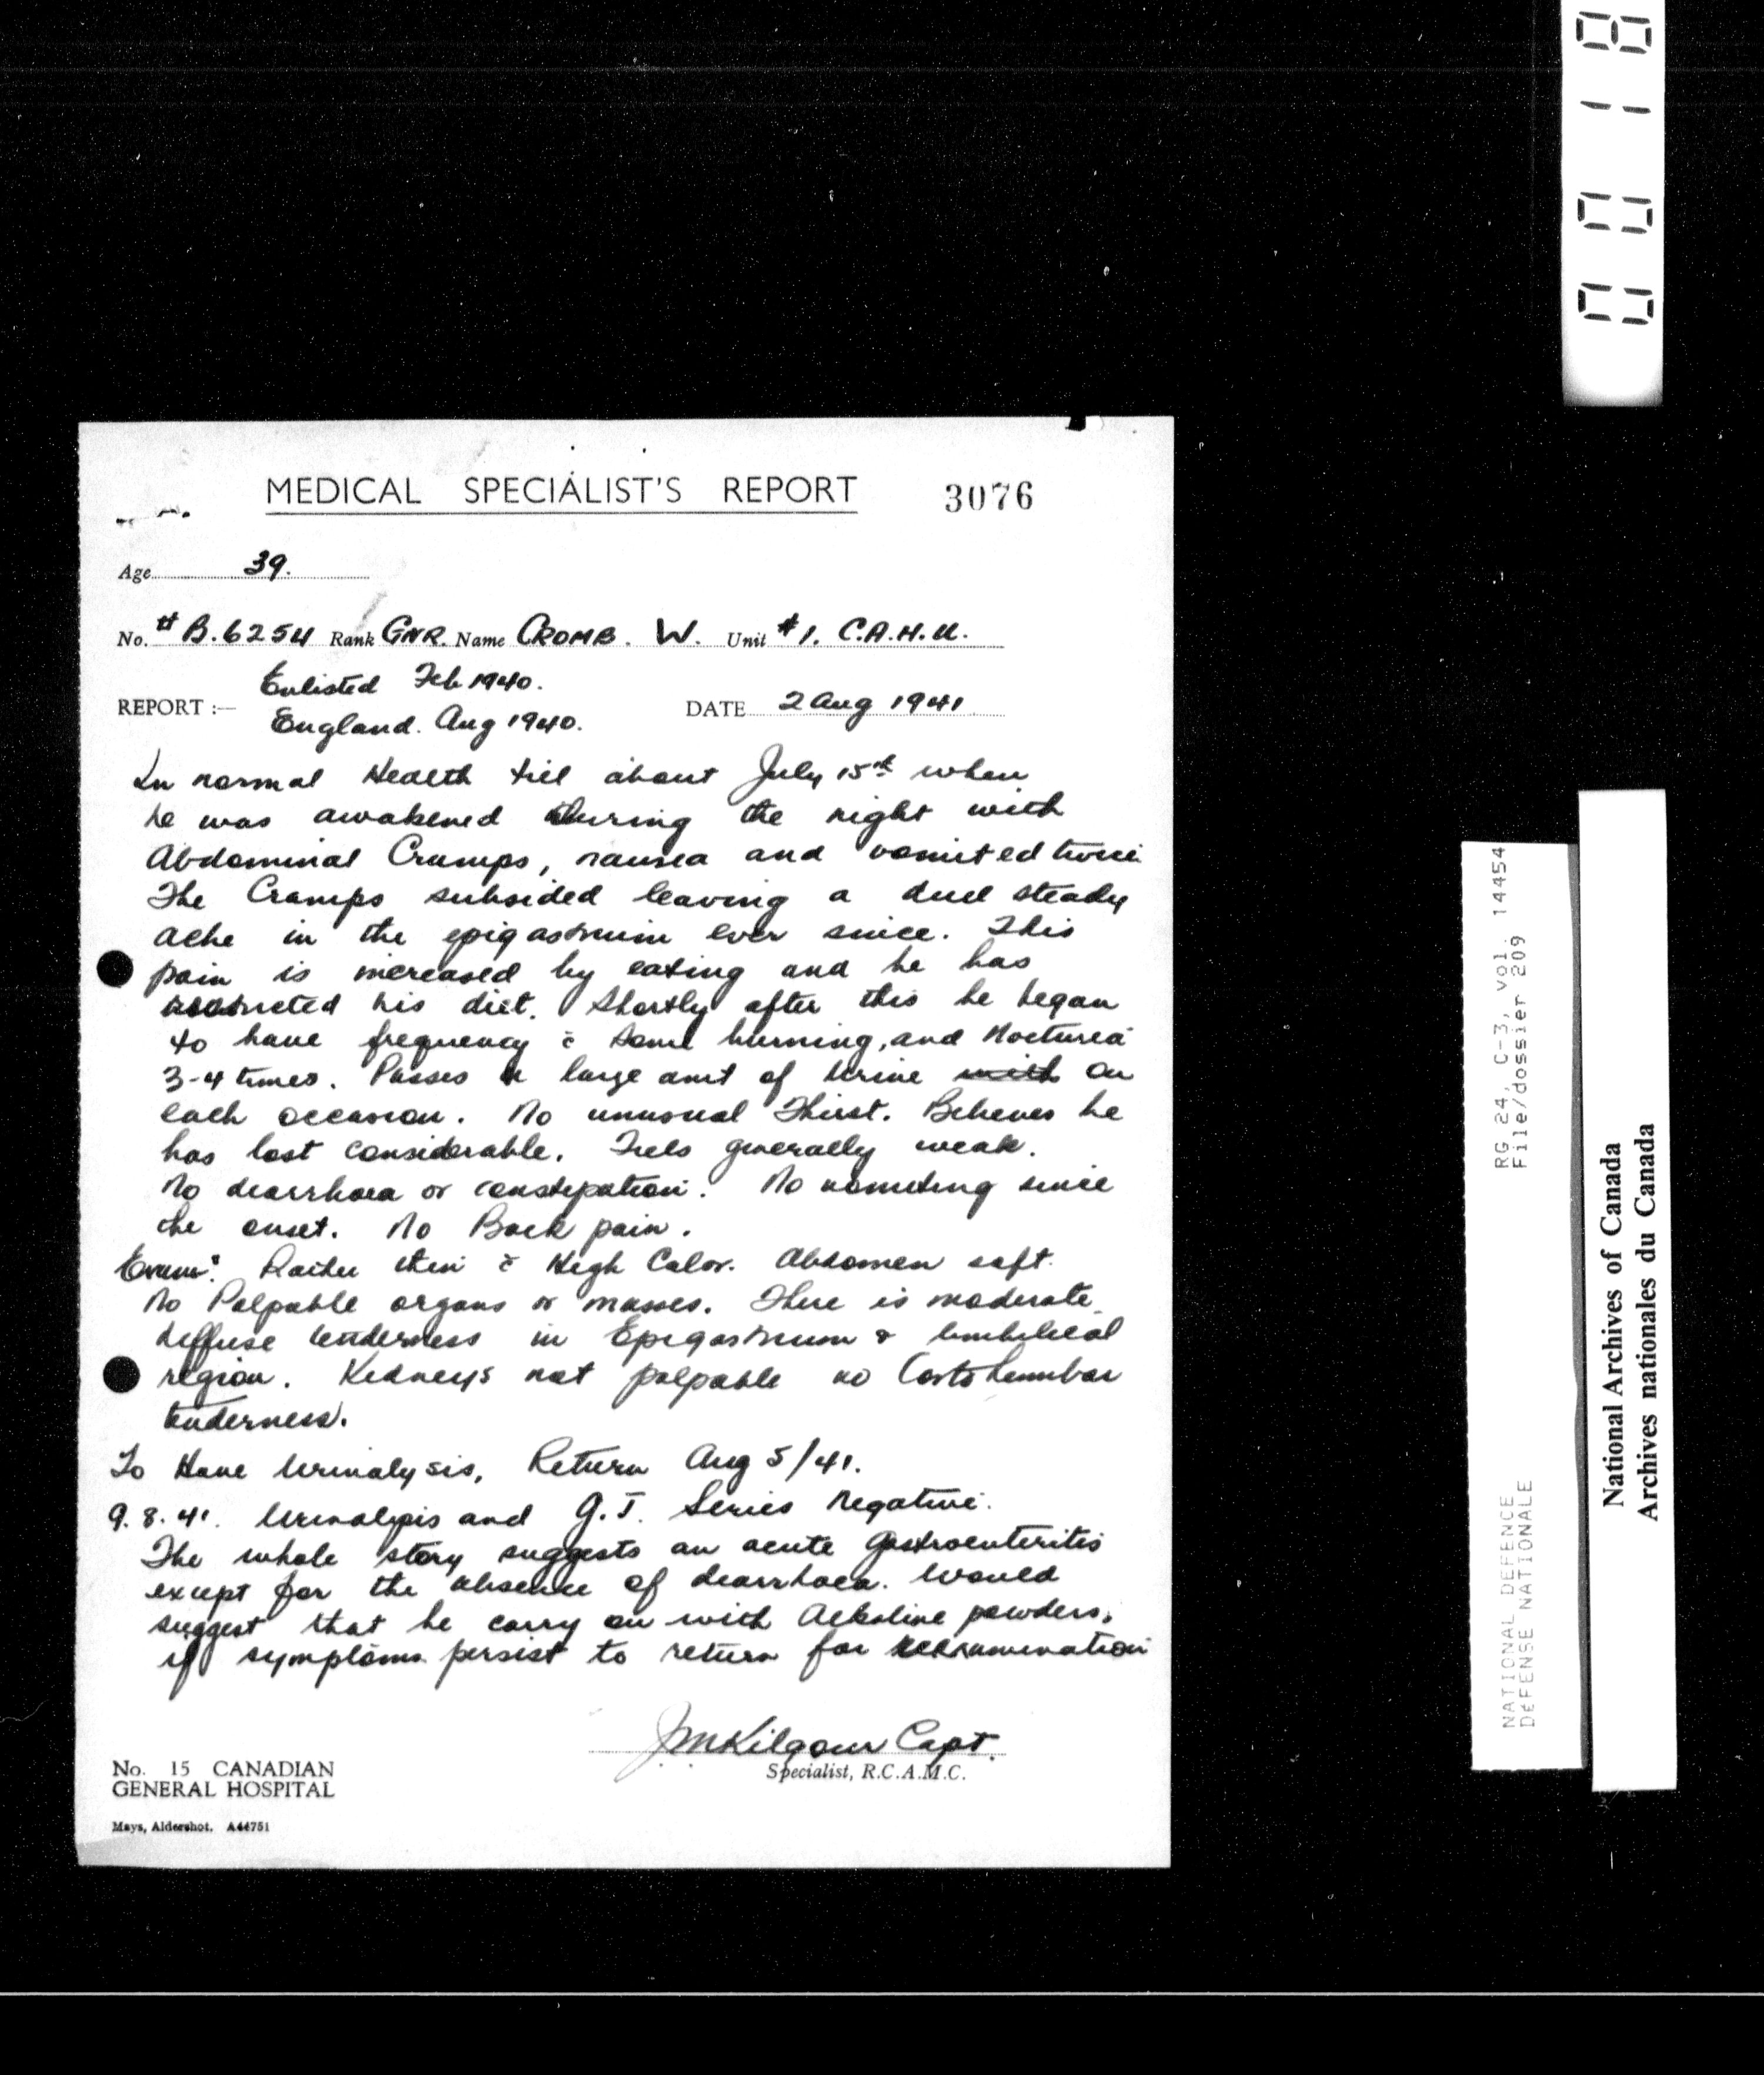 MEDICAL SPECIALIST'S REPORT 3076
Age 39.
No. # B.6254 Rank GNR. Name CROMB. W. Unit #1. C.A.H.U.
Enlisted Feb 1940.
REPORT :— DATE 2 Aug 1941
England. Aug 1940.
In normal Health till about July 15th when
he was awakened during the night with
Abdominal Cramps, nausea and vomited twice
The Cramps subsided leaving a dull steady
ache in the epigastrium ever since. This
pain is increased by eating and he has
restricted his diet. Shortly after this he began
to have frequency c̄ some burning, and Nocturea
3-4 times. Passes a large amt of urine with on
each occasion. No unusual Thirst. Believes he
has lost considerable. Feels generally weak.
No diarrhoea or constipation. No vomiting since
the onset. No Back pain.
Exam: Rather thin c̄ High Color. Abdomen soft.
No Palpable organs or masses. There is moderate
diffuse tenderness in Epigastrium & Umbilical
region. Kidneys not palpable no Costo Lumbar
tenderness.
To Have Urinalysis, Return Aug 5/41.
9.8.41. Urinalysis and G.I. Series Negative.
The whole story suggests an acute gastroenteritis
except for the absence of diarrhoea. Would
suggest that he carry on with Alkaline powders.
if symptoms persist to return for reexamination
JMKilgour Capt.
Specialist, R.C.A.M.C.
No. 15 CANADIAN
GENERAL HOSPITAL
Mays, Aldershot. A44751
0018
RG 24, C-3, vol. 14454
File/dossier 209
NATIONAL DEFENCE
DÉFENSE NATIONALE
National Archives of Canada
Archives nationales du Canada